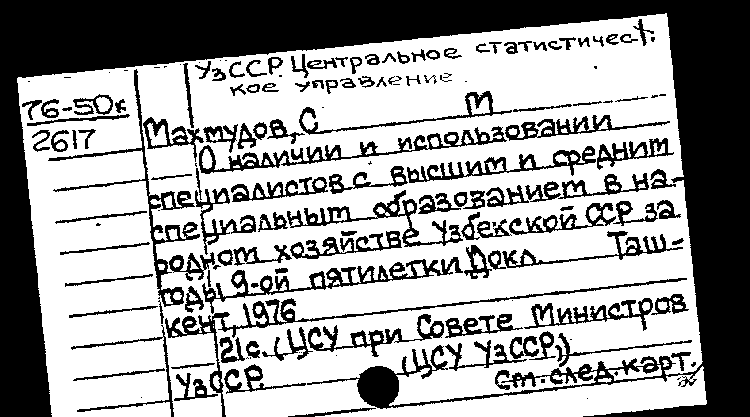 УзССР. Центральное статистичес-
кое управление
76-50к
2617
Махмудов, С М
О наличии и использовании
специалистов с высшим и средним
специальным образованием в на-
родном хозяйстве Узбекской ССР за
годы 9-ой пятилетки Докл. Таш-
кент, 1976.
21с. (ЦСУ при Совете Министров
УзССР. (ЦСУ УзССР,)
См. след. карт.